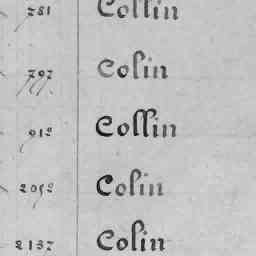 281 Collin
797 Colin
912 Collin
2092 Colin
2137 Colin